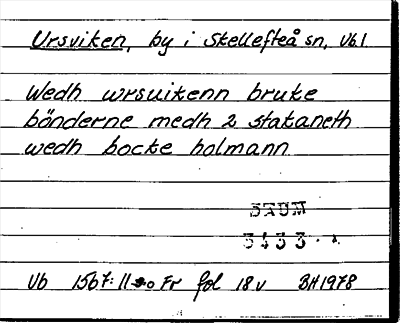 Ursviken, by i Skellefteå sn, Vb.l
Wedh wrsuikenn bruke
bönderne medh 2 stakaneth
wedh bocke holmann
5433
Vb 1567:11 Fr fol 18 v BH1978